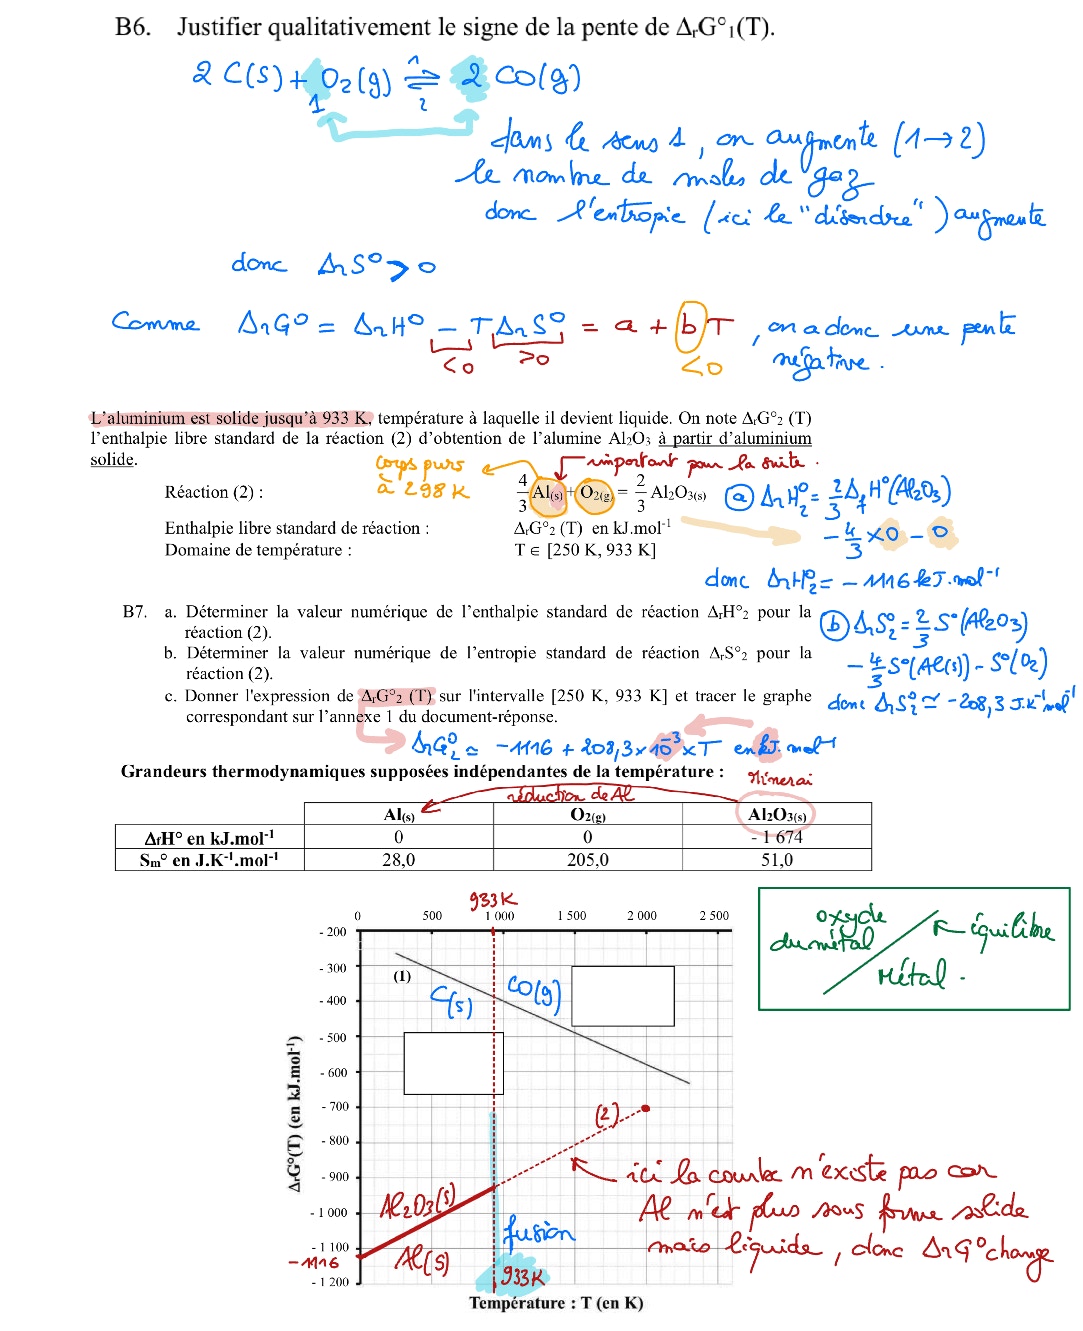 B6. Justifier qualitativement le signe de la pente de ΔrG°1(T).
2 C(s) + O2(g) ⇌ 2 CO(g)
1
1
2
dans le sens 1, on augmente (1→2)
le nombre de moles de gaz
donc l'entropie (ici le "désordre") augmente
donc ΔrS° > 0
Comme ΔrG° = ΔrH° - TΔrS° = a + bT, on a donc une pente
négative.
<0
>0
<0
L'aluminium est solide jusqu'à 933 K, température à laquelle il devient liquide. On note ΔrG°2 (T)
l'enthalpie libre standard de la réaction (2) d'obtention de l'alumine Al2O3 à partir d'aluminium
solide.
corps purs
à 298 K
important pour la suite.
Réaction (2) : 4/3 Al(s) + O2(g) = 2/3 Al2O3(s)
(a) ΔrH°2 = 2/3 ΔfH°(Al2O3)
- 4/3 × 0 - 0
Enthalpie libre standard de réaction : ΔrG°2 (T) en kJ.mol-1
Domaine de température : T ∈ [250 K, 933 K]
donc ΔrH°2 = -1116 kJ.mol-1
B7. a. Déterminer la valeur numérique de l'enthalpie standard de réaction ΔrH°2 pour la
réaction (2).
b. Déterminer la valeur numérique de l'entropie standard de réaction ΔrS°2 pour la
réaction (2).
c. Donner l'expression de ΔrG°2 (T) sur l'intervalle [250 K, 933 K] et tracer le graphe
correspondant sur l'annexe 1 du document-réponse.
(b) ΔrS°2 = 2/3 S°(Al2O3)
- 4/3 S°(Al(s)) - S°(O2)
donc ΔrS°2 ≃ -208,3 J.K-1.mol-1
ΔrG°2 ≃ -1116 + 208,3×10-3×T en kJ.mol-1
Grandeurs thermodynamiques supposées indépendantes de la température :
Minerai
réduction de Al
Al(s) O2(g) Al2O3(s)
ΔfH° en kJ.mol-1 0 0 - 1 674
Sm° en J.K-1.mol-1 28,0 205,0 51,0
933K
0 500 1 000 1 500 2 000 2 500
oxyde
du métal
Métal.
équilibre
- 200
- 300
- 400
- 500
- 600
- 700
- 800
- 900
- 1 000
- 1 100
-1116
- 1 200
ΔrG°(T) (en kJ.mol-1)
(1)
C(s)
CO(g)
(2)
Al2O3(s)
Al(s)
fusion
933K
ici la courbe n'existe pas car
Al n'est plus sous forme solide
mais liquide, donc ΔrG° change
Température : T (en K)